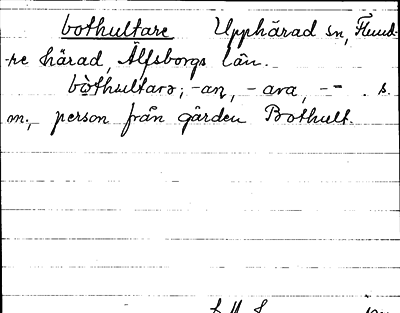 bothultare Upphärad sn, Flund-
re härad, Älfsborgs län.
bòthultarə, -an, -ara, -- s.
m., person från gården Bothult.